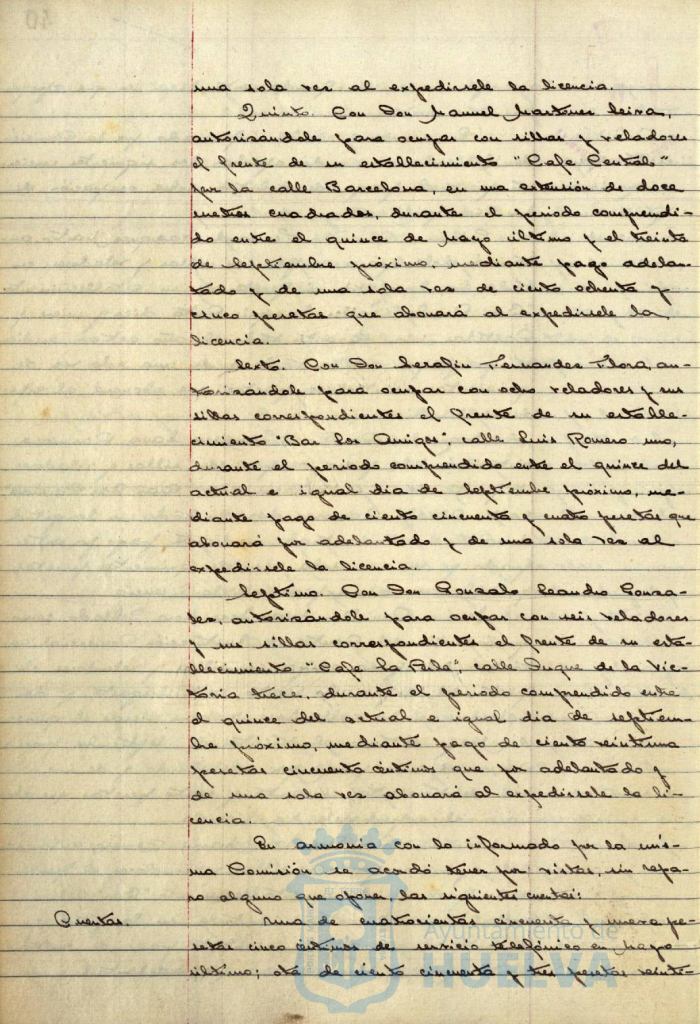 una sola vez al expedirsele la licencia.
Quinto. Con Don Manuel Martinez Leira,
autorizándole para ocupar con sillas y veladores
el frente de su establecimiento "Cafe Central"
por la calle Barcelona, en una extensión de doce
metros cuadrados, durante el periodo comprendi-
do entre el quince de Mayo último y el treinta
de Septiembre próximo, mediante pago adelan-
tado y de una sola vez de ciento ochenta y
cinco pesetas que abonará al expedirsele la
licencia.
Sexto. Con Don Serafin Fernandez Flora, au-
torizándole para ocupar con ocho veladores y sus
sillas correspondientes el frente de su estable-
cimiento "Bar Los Amigos", calle Luis Romero uno,
durante el periodo comprendido entre el quince del
actual e igual dia de Septiembre próximo, me-
diante pago de ciento cincuenta y cuatro pesetas que
abonará por adelantado y de una sola vez al
expedirsele la licencia.
Septimo. Con Don Gonzalo Leandro Gonza-
lez, autorizándole para ocupar con seis veladores
y sus sillas correspondientes el frente de su esta-
blecimiento "Cafe La Perla", calle Duque de la Vic-
toria trece, durante el periodo comprendido entre
el quince del actual e igual dia de septiem-
bre próximo, mediante pago de ciento veintiuna
pesetas cincuenta céntimos que por adelantado y
de una sola vez abonará al expedirsele la li-
cencia.
En armonia con lo informado por la mis-
ma Comisión se acordó tener por vistas, sin repa-
ro alguno que oponer, las siguientes cuentas:
Cuentas. una de cuatrocientas cincuenta y nueve pe-
setas cinco céntimos de servicio telefónico en Mayo
último; otra de ciento cincuenta y tres pesetas veinti-
Ayuntamiento de
HUELVA
40